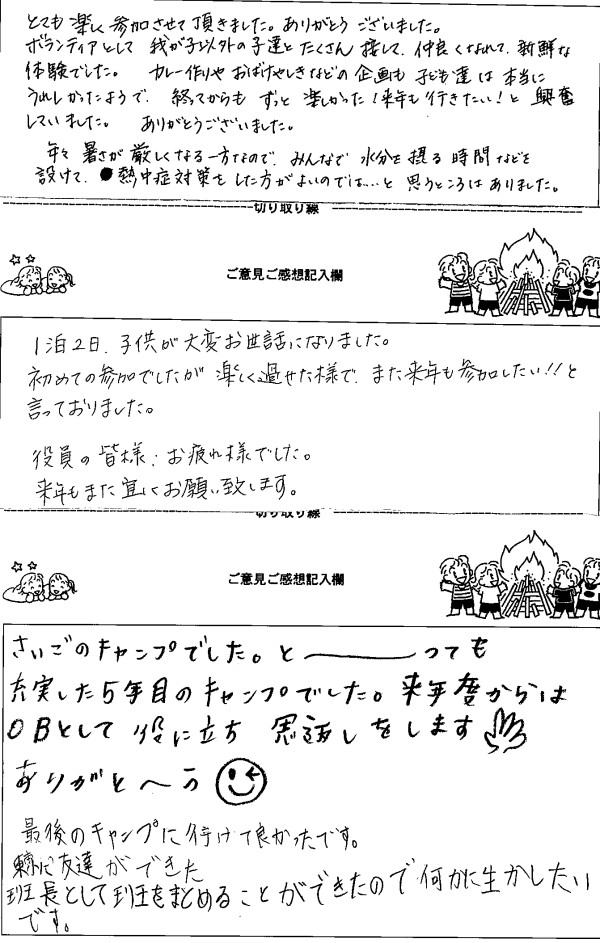 とても楽しく参加させて頂きました。ありがとうございました。
ボランティアとして我が子以外の子達とたくさん接して、仲良くなれて、新鮮な
体験でした。 カレー作りやおばけやしきなどの企画も子ども達は本当に
うれしかったようで、終ってからもずっと楽しかった!来年も行きたい!と興奮
していました。 ありがとうございました。
年々暑さが厳しくなる一方なので、みんなで水分を摂る時間などを
設けて、熱中症対策をした方がよいのでは…と思うところはありました。
切り取り線
ご意見ご感想記入欄
1泊2日、子供が大変お世話になりました。
初めての参加でしたが楽しく過せた様で、また来年も参加したい!!と
言っておりました。
役員の皆様、お疲れ様でした。
来年もまた宜しくお願い致します。
切り取り線
ご意見ご感想記入欄
さいごのキャンプでした。と――――っても
充実した5年目のキャンプでした。来年度からは
OBとして役に立ち 恩返しをします
ありがと〜う
最後のキャンプに行けて良かったです。
友達ができた
班長として班をまとめることができたので何かに生かしたい
です。